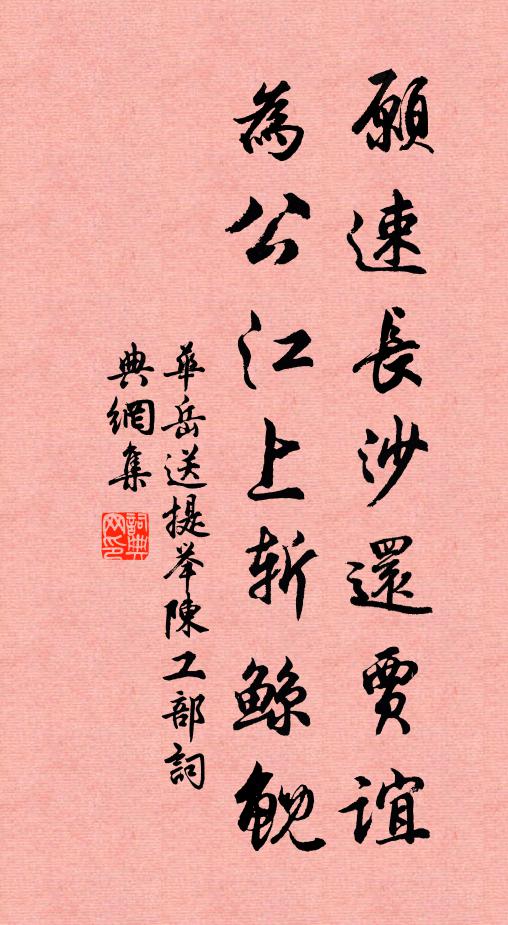 願速長沙還賈誼
為公江上斬鯨鯢
華岳送提舉陳工部詞
典網集
詞典網印